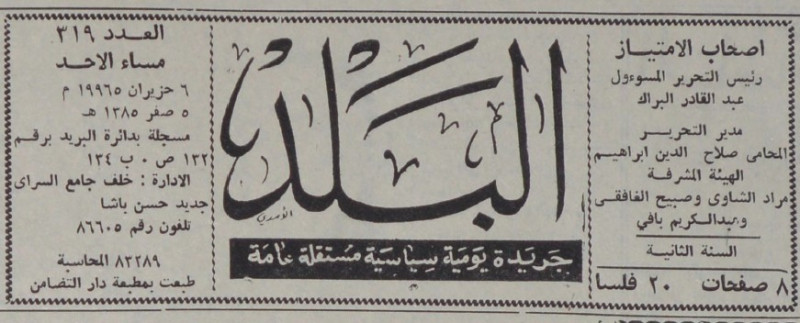 اصحاب الامتياز
رئيس التحرير المسوءول
عبد القادر البراك
مدير التحرير
المحامى صلاح الدين ابراهيم
الهيئة المشرفة
مراد الشاوى وصبيح الغافقى
وعبدالكريم بافي
السنة الثانية
٨ صفحات ٢٠ فلسا
البلد
الأحمدي
جريدة يومية سياسية مستقلة عامة
العدد ٣١٩
مساء الاحد
٦ حزيران ١٩٩٦٥ م
٥ صفر ١٣٨٥ هـ
مسجلة بدائرة البريد برقم
١٣٢ ص ٠ ب ١٣٤
الادارة : خلف جامع السراى
جديد حسن باشا
تلفون رقم ٨٦٦٠٥
٨٢٢٨٩ المحاسبة
طبعت بمطبعة دار التضامن